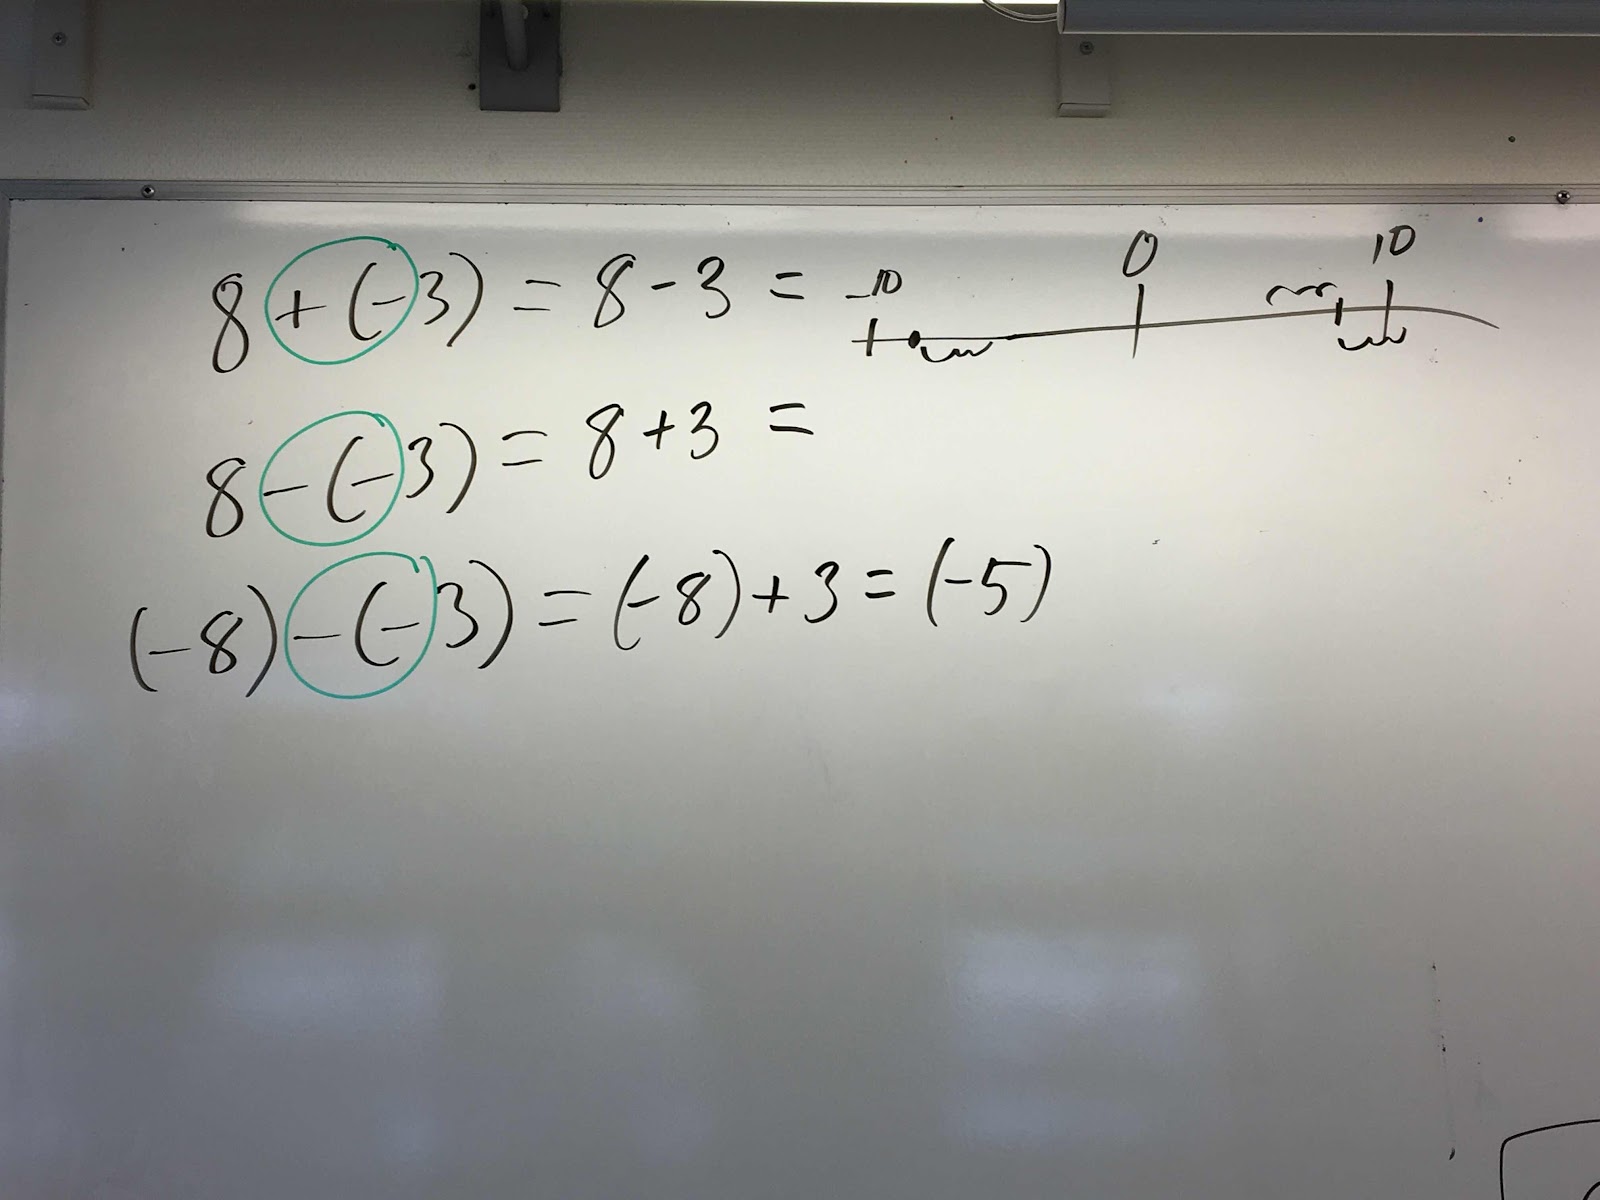 8 + (-3) = 8 - 3 =
-10 0 10
8 - (-3) = 8 + 3 =
(-8) - (-3) = (-8) + 3 = (-5)